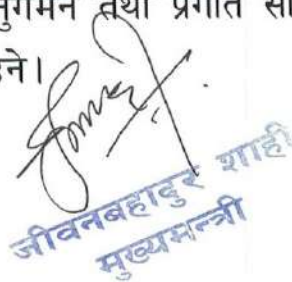 नुगमन तथा प्रगति सा
ने।
जीवनबहादुर शाही
मुख्यमन्त्री